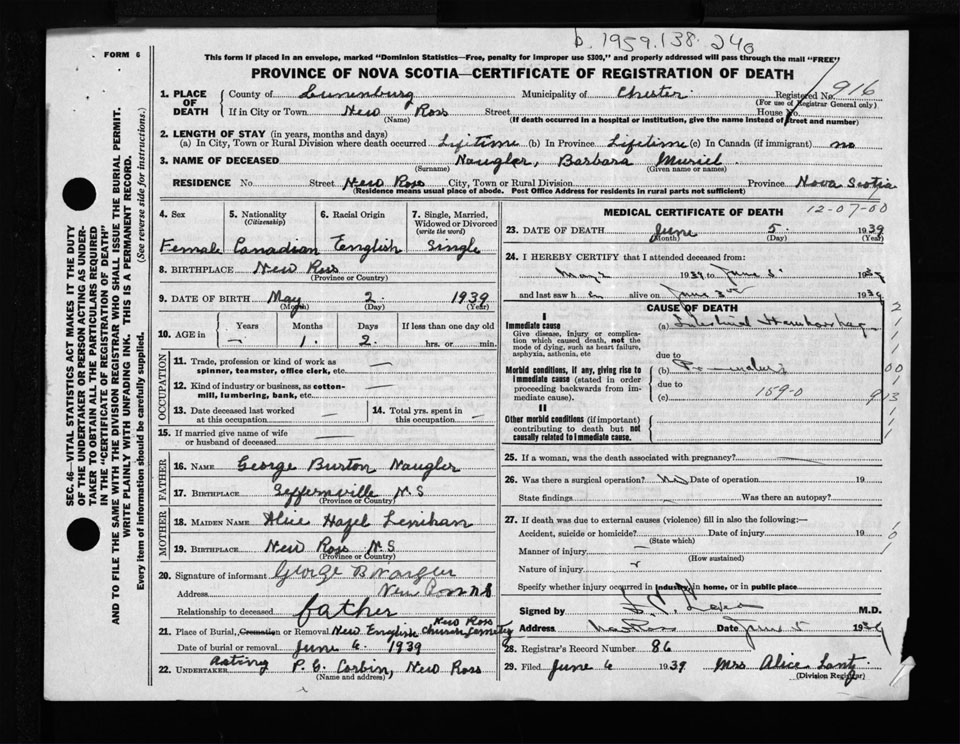 b. 1959.138.240
FORM 6
This form if placed in an envelope, marked "Dominion Statistics—Free, penalty for improper use $300," and properly addressed will pass through the mail "FREE"
PROVINCE OF NOVA SCOTIA—CERTIFICATE OF REGISTRATION OF DEATH
SEC. 46—VITAL STATISTICS ACT MAKES IT THE DUTY
OF THE UNDERTAKER OR PERSON ACTING AS UNDER-
TAKER TO OBTAIN ALL THE PARTICULARS REQUIRED
IN THE "CERTIFICATE OF REGISTRATION OF DEATH"
AND TO FILE THE SAME WITH THE DIVISION REGISTRAR WHO SHALL ISSUE THE BURIAL PERMIT.
WRITE PLAINLY WITH UNFADING INK. THIS IS A PERMANENT RECORD.
Every item of information should be carefully supplied. (See reverse side for instructions.)
1. PLACE OF DEATH County of Lunenburg Municipality of Chester Registered No. 916
(For use of Registrar General only)
If in City or Town New Ross Street House No.
(Name) (If death occurred in a hospital or institution, give the name instead of street and number)
2. LENGTH OF STAY (in years, months and days)
(a) In City, Town or Rural Division where death occurred Lifetime (b) In Province Lifetime (c) In Canada (if immigrant) no
3. NAME OF DECEASED Naugler, Barbara Muriel
(Surname) (Given name or names)
RESIDENCE No Street New Ross City, Town or Rural Division Province Nova Scotia
(Residence means usual place of abode. Post Office Address for residents in rural parts not sufficient)
4. Sex Female
5. Nationality (Citizenship) Canadian
6. Racial Origin English
7. Single, Married, Widowed or Divorced (write the word) Single
8. BIRTHPLACE New Ross
(Province or Country)
9. DATE OF BIRTH May 2 1939
(Month) (Day) (Year)
10. AGE in Years — Months 1 Days 2 If less than one day
hrs. or min.
OCCUPATION
11. Trade, profession or kind of work as
spinner, teamster, office clerk, etc. —
12. Kind of industry or business, as cotton-
mill, lumbering, bank, etc. —
13. Date deceased last worked
at this occupation —
14. Total yrs. spent in
this occupation —
15. If married give name of wife
or husband of deceased —
FATHER
16. NAME George Burton Naugler
17. BIRTHPLACE N.S
(Province or Country)
MOTHER
18. MAIDEN NAME Alice Hazel Lenihan
19. BIRTHPLACE New Ross N.S
(Province or Country)
20. Signature of informant George B Naugler
Address New Ross N S
Relationship to deceased father
21. Place of Burial, Cremation or Removal New English Church Cemetery New Ross
Date of burial or removal June 6 1939
22. UNDERTAKER Acting P. E. Corbin, New Ross
(Name and address)
MEDICAL CERTIFICATE OF DEATH
12-07-00
23. DATE OF DEATH June 5. 1939
(Month) (Day) (Year)
24. I HEREBY CERTIFY that I attended deceased from:
May 2 1939 to June 5 1939
and last saw h er alive on June 3rd 1939
CAUSE OF DEATH
I
Immediate cause (a)
Give disease, injury or complica-
tion which caused death, not the
mode of dying, such as heart failure,
asphyxia, asthenia, etc
due to
Morbid conditions, if any, giving rise to
immediate cause (stated in order
proceeding backwards from im-
mediate cause).
(b)
due to 159-0
(c)
II
Other morbid conditions (if important)
contributing to death but not
causally related to immediate cause.
25. If a woman, was the death associated with pregnancy?
26. Was there a surgical operation? No Date of operation 19
State findings Was there an autopsy?
27. If death was due to external causes (violence) fill in also the following:—
Accident, suicide or homicide? Date of injury 19
(State which)
Manner of injury
(How sustained)
Nature of injury
Specify whether injury occurred in industry, in home, or in public place
Signed by M.D.
Address New Ross Date June 5 1939
28. Registrar's Record Number 86
29. Filed June 6 1939 Mrs Alice Lantz
(Division Registrar)